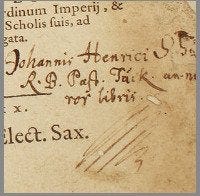 ordinum Imperij, &
Scholis suis, ad
gata.
Johannis Henrici
R. D. Past.
libris.
x.
Elect. Sax.